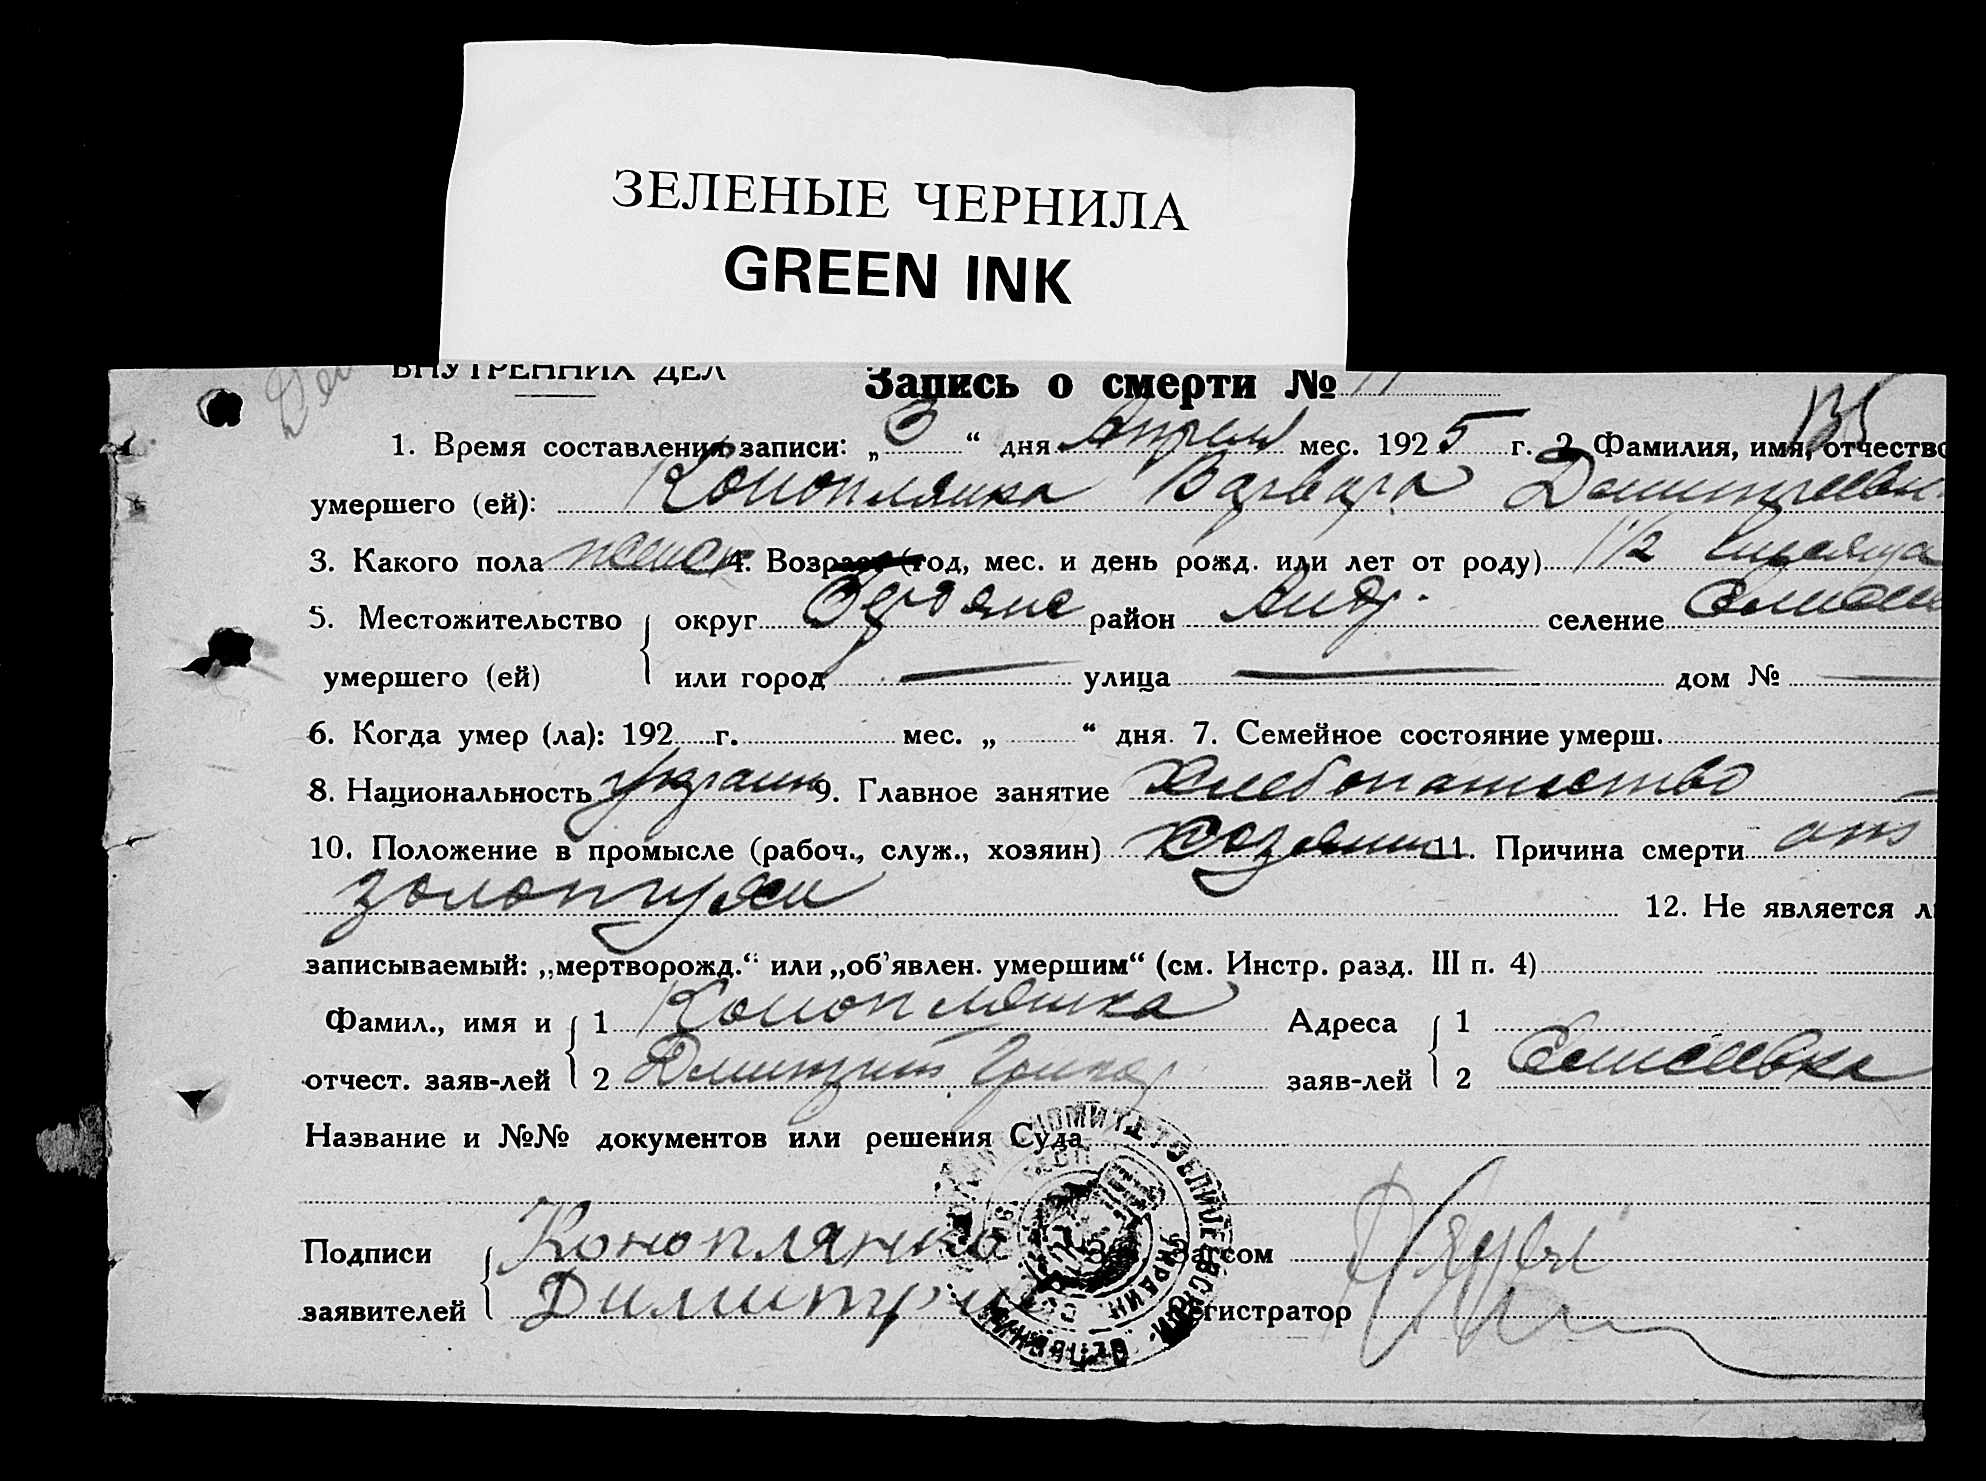 ЗЕЛЕНЫЕ ЧЕРНИЛА
GREEN INK
ВНУТРЕННИХ ДЕЛ
Запись о смерти № 11
135
1. Время составления записи: „ 3 “ дня Апреля мес. 1925 г. 2. Фамилия, имя, отчество
умершего (ей): Конопляшка Варвара Дмитриевн
3. Какого пола женск 4. Возраст (год, мес. и день рожд. или лет от роду) 1 1/2
5. Местожительство округ Бердянс район Андр. селение Елисеев
умершего (ей) или город — улица — дом № —
6. Когда умер (ла): 192 г. мес. „ “ дня. 7. Семейное состояние умерш.
8. Национальность украин 9. Главное занятие Хлебопашество
10. Положение в промысле (рабоч., служ., хозяин) хозяин 11. Причина смерти от
золотухи 12. Не является л
записываемый: „мертворожд.“ или „об'явлен. умершим“ (см. Инстр. разд. III п. 4)
Фамил., имя и 1 Конопляшка Адреса 1
отчест. заяв-лей 2 Дмитрий Григор заяв-лей 2 Елисеевка
Название и №№ документов или решения Суда
Подписи Коноплянко Загсом
заявителей Димитрий Регистратор